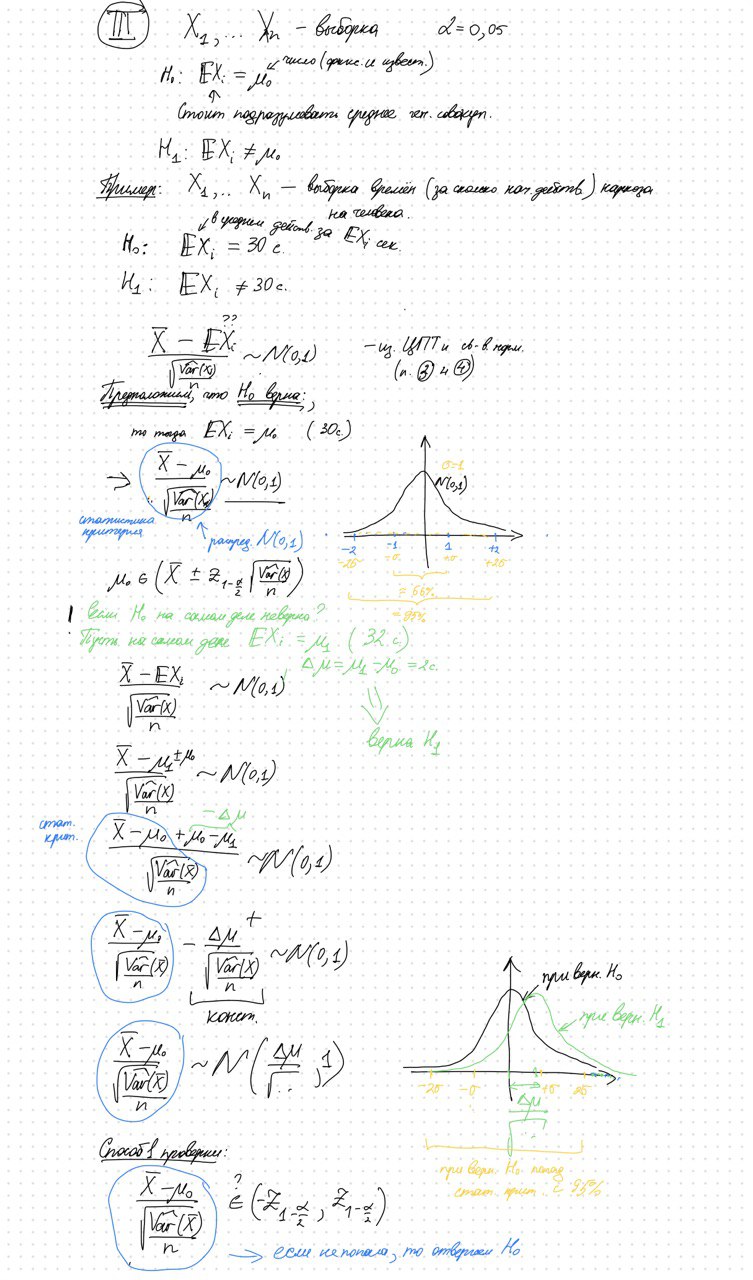 III X₁, ... Xₙ – выборка α = 0,05
число (фикс. и извест.)
H₀: 𝔼Xᵢ = μ₀
Стоит подразумевать среднее ген. совокуп.
H₁: 𝔼Xᵢ ≠ μ₀
Пример: X₁, .. Xₙ – выборка времён (за сколько нач. действ.) наркоза
на человека.
в среднем действ. за 𝔼Xᵢ сек.
H₀: 𝔼Xᵢ = 30 с.
H₁: 𝔼Xᵢ ≠ 30 с.
??
(X̄ – 𝔼Xᵢ) / √(Var̂(Xᵢ)/n) ~ N(0,1) – из ЦПТ и св-в норм.
(п. ③ и ④)
Предположим, что H₀ верна:,
то тогда 𝔼Xᵢ = μ₀ (30с)
→ (X̄ – μ₀) / √(Var̂(Xᵢ)/n) ~ N(0,1)
статистика критерия
распред. N(0,1)
σ=1
N(0,1)
-2 -1 1 +2
-2σ -σ +σ +2σ
≈ 66%
≈ 95%
μ₀ ∈ (X̄ ± z₁₋α/₂ √(Var̂(X)/n))
если H₀ на самом деле неверно?
Пусть на самом деле 𝔼Xᵢ = μ₁ (32 с.)
Δμ = μ₁ – μ₀ = 2с.
(X̄ – 𝔼Xᵢ) / √(Var̂(X)/n) ~ N(0,1)
⇓
верна H₁
(X̄ – μ₁ ± μ₀) / √(Var̂(X)/n) ~ N(0,1)
– Δμ
стат. крит.
(X̄ – μ₀ + μ₀ – μ₁) / √(Var̂(X)/n) ~ N(0,1)
(X̄ – μ₀) / √(Var̂(X)/n) – Δμ / √(Var̂(X)/n) + ~ N(0,1)
конст.
(X̄ – μ₀) / √(Var̂(X)/n) ~ N(Δμ/√.., 1)
при верн. H₀
при верн. H₁
-2σ -σ +σ 2σ
Δμ/√..
при верн. H₀ попад.
стат. крит. ≈ 95%
Способ 1 проверки:
(X̄ – μ₀) / √(Var̂(X)/n) ?∈ (-z₁₋α/₂, z₁₋α/₂)
→ если не попала, то отвергаем H₀